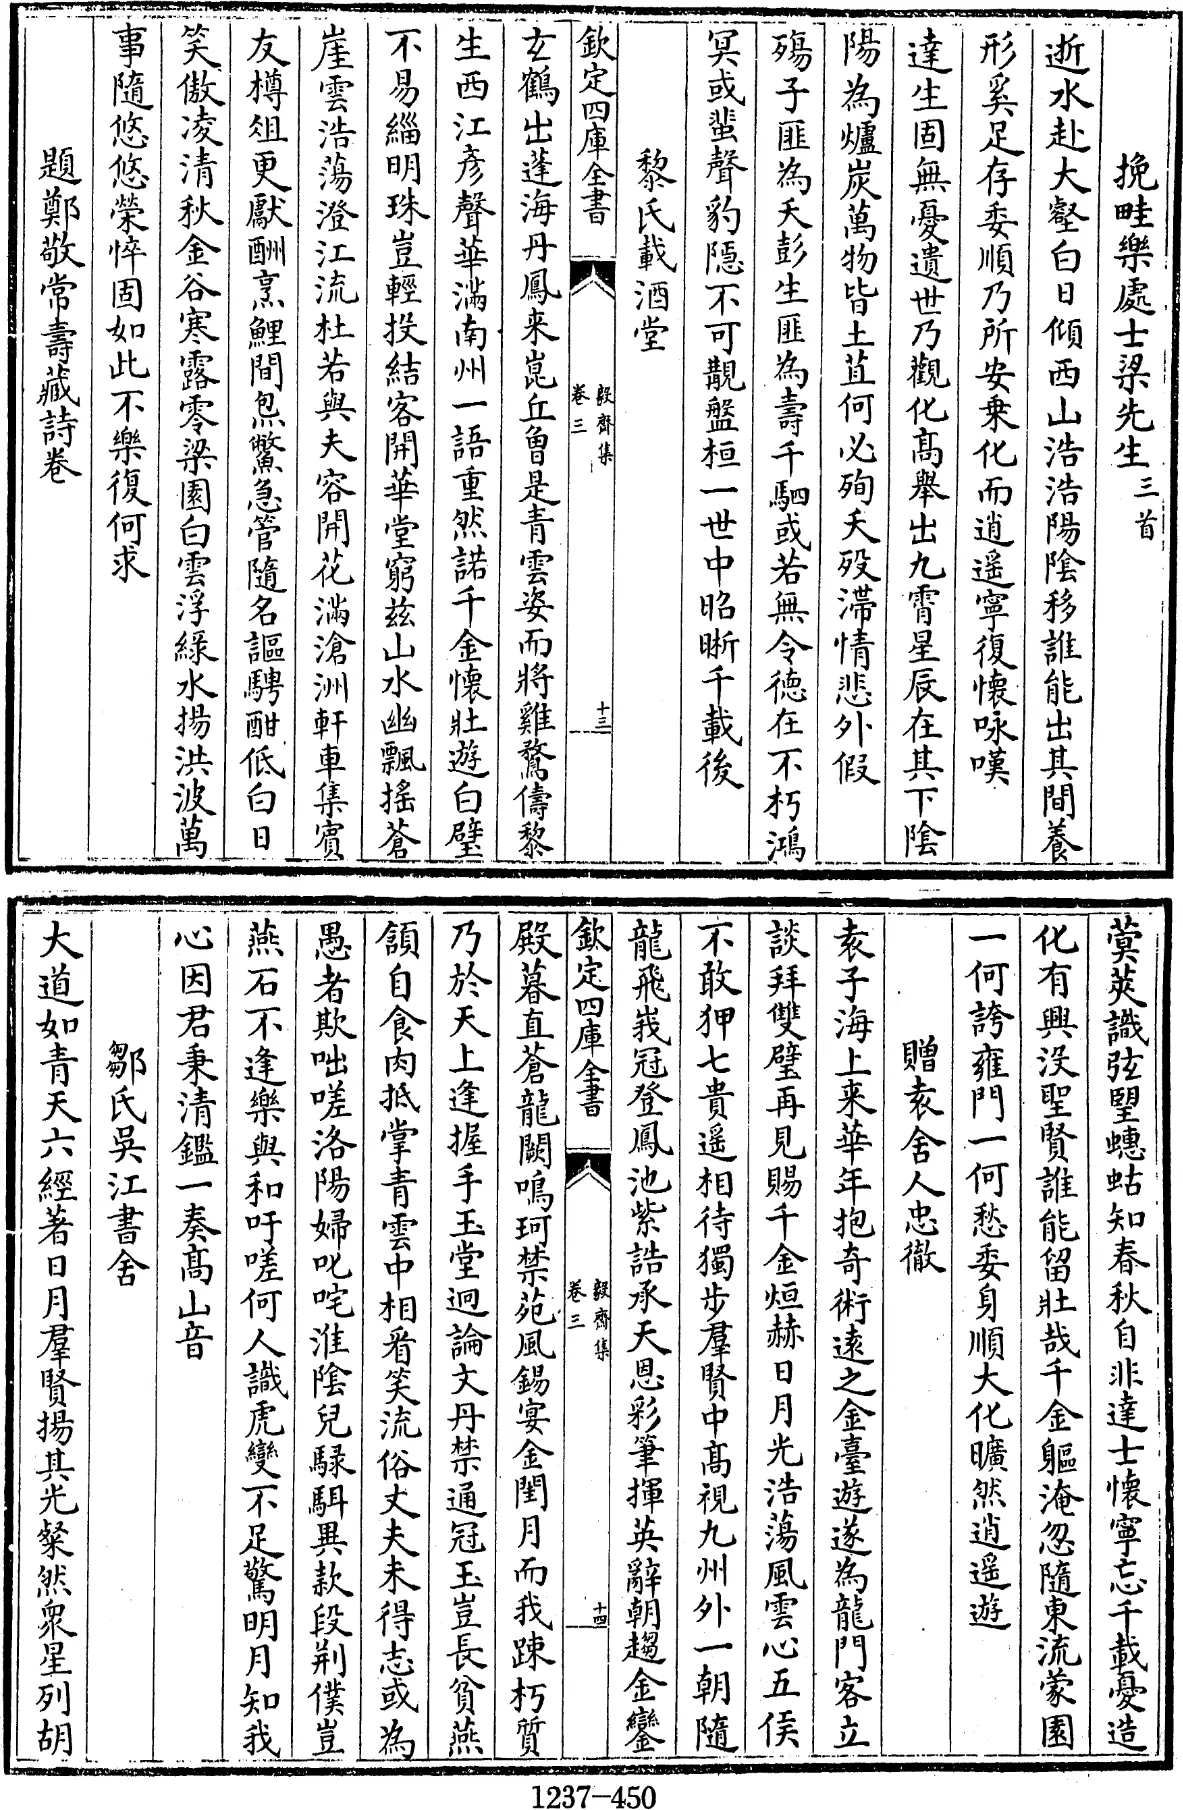 挽畦樂處士梁先生三首
逝水赴大壑白日傾西山浩浩陽陰移誰能出其間養
形奚足存委順乃所安乗化而逍遥寧復懷咏嘆
達生固無憂遺世乃觀化髙舉出九霄星辰在其下陰
陽為爐炭萬物皆土苴何必殉夭殁滯情悲外假
殤子匪為夭彭生匪為壽千駟或若無令徳在不朽鴻
冥或蜚聲豹隠不可覯盤桓一世中昭晰千載後
黎氏載酒堂
欽定四庫全書
毅齋集
卷三
十三
玄鶴出蓬海丹鳳来崑丘曾是青雲姿而將雞鶩儔黎
生西江彦聲華滿南州一語重然諾千金懷壯遊白璧
不易緇明珠豈輕投結客開華堂窮兹山水幽飄摇蒼
崖雲浩蕩澄江流杜若與夫容開花滿滄洲軒車集賓
友樽俎更獻酬烹鯉間炰鱉急管隨名謳騁酣低白日
笑傲凌清秋金谷寒露零梁園白雲浮緑水揚洪波萬
事隨悠悠榮悴固如此不樂復何求
題鄭敬常壽藏詩卷
蓂莢識弦朢蟪蛄知春秋自非達士懷寧忘千載憂造
化有興没聖賢誰能留壯哉千金軀淹忽隨東流蒙園
一何誇雍門一何愁委身順大化曠然逍遥遊
贈袁舍人忠徹
袁子海上来華年抱奇術逺之金臺遊遂為龍門客立
談拜雙璧再見賜千金烜赫日月光浩蕩風雲心五侯
不敢狎七貴遥相待獨步羣賢中髙視九州外一朝隨
龍飛峩冠登鳳池紫誥承天恩彩筆揮英辭朝趨金鑾
欽定四庫全書
毅齋集
卷三
十四
殿暮直蒼龍闕鳴珂禁苑風錫宴金閨月而我踈朽質
乃於天上逢握手玉堂迥論文丹禁通冠玉豈長貧燕
頷自食肉抵掌青雲中相看笑流俗丈夫未得志或為
愚者欺咄嗟洛陽婦叱咤淮陰兒騄駬異款段荆僕豈
燕石不逢樂與和吁嗟何人識虎變不足驚明月知我
心因君秉清鑑一奏髙山音
鄒氏吳江書舍
大道如青天六經著日月羣賢揚其光粲然衆星列胡
1237-450